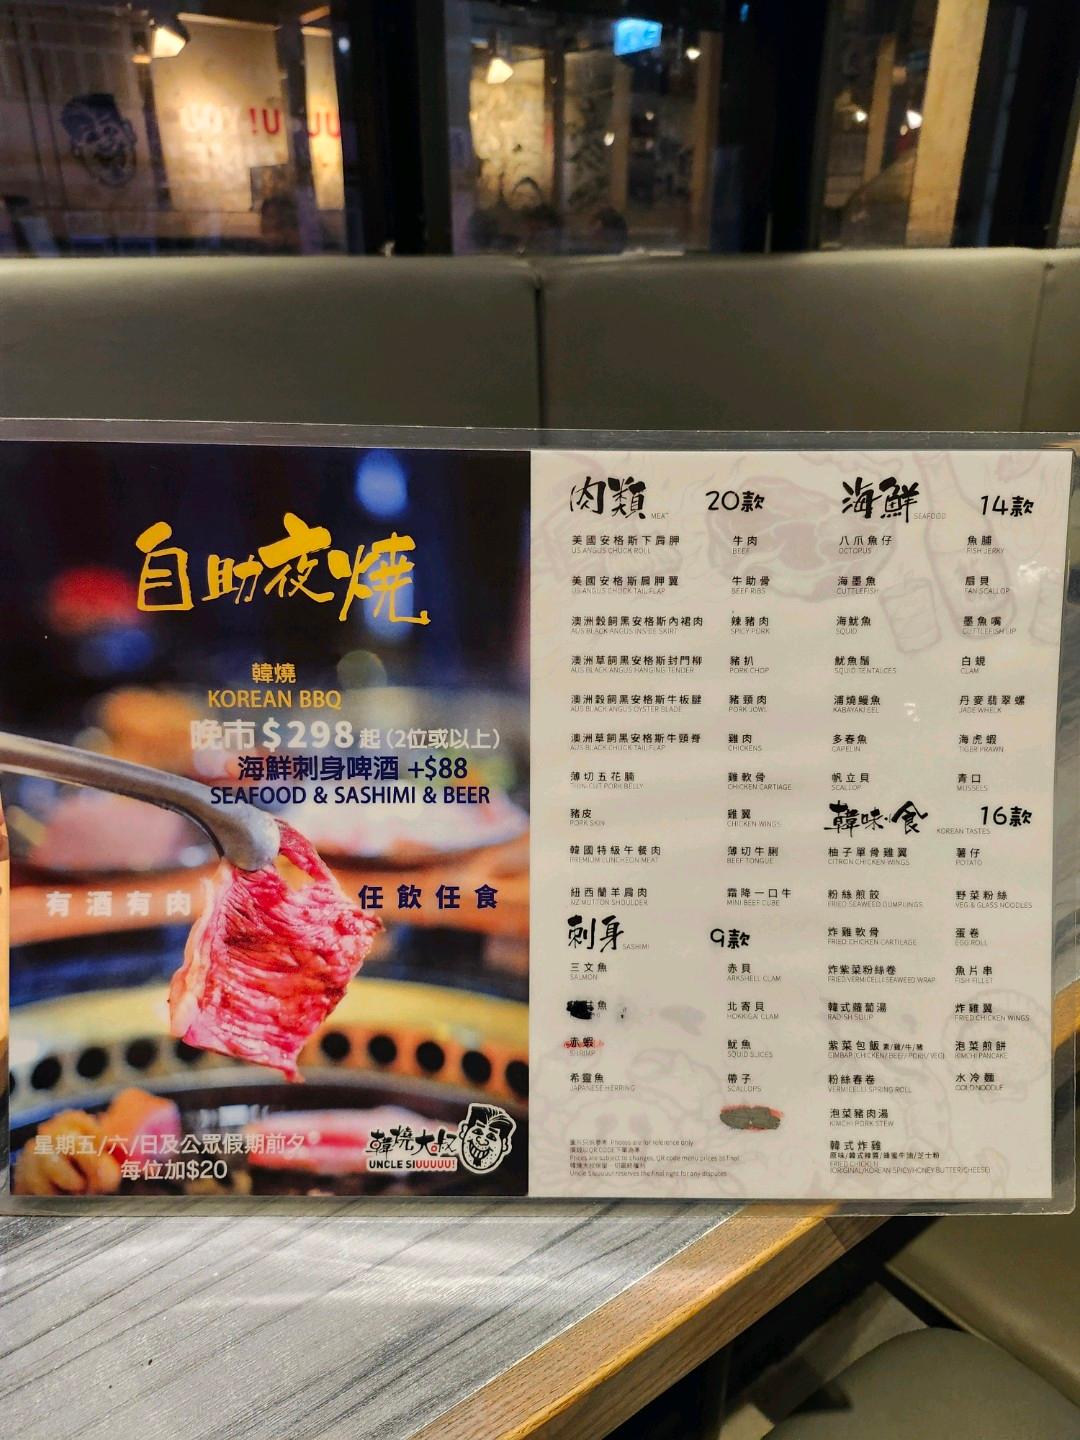 自助夜燒
韓燒
KOREAN BBQ
晚市$298起(2位或以上)
海鮮刺身啤酒 +$88
SEAFOOD & SASHIMI & BEER
有酒有肉
任飲任食
星期五/六/日及公眾假期前夕
每位加$20
韓燒大叔
UNCLE SIUUUUU!
肉類 MEAT 20款
美國安格斯下肩胛
US ANGUS CHUCK ROLL
美國安格斯肩胛翼
US ANGUS CHUCK TAIL FLAP
澳洲穀飼黑安格斯內裙肉
AUS BLACK ANGUS INSIDE SKIRT
澳洲草飼黑安格斯封門柳
AUS BLACK ANGUS HANGING TENDER
澳洲穀飼黑安格斯牛板腱
AUS BLACK ANGUS OYSTER BLADE
澳洲草飼黑安格斯牛頸脊
AUS BLACK CHUCK TAIL FLAP
薄切五花腩
THIN-CUT PORK BELLY
豬皮
PORK SKIN
韓國特級午餐肉
PREMIUM LUNCHEON MEAT
紐西蘭羊肩肉
NZ MUTTON SHOULDER
牛肉
BEEF
牛助骨
BEEF RIBS
辣豬肉
SPICY PORK
豬扒
PORK CHOP
豬頸肉
PORK JOWL
雞肉
CHICKENS
雞軟骨
CHICKEN CARTIAGE
雞翼
CHICKEN WINGS
薄切牛脷
BEEF TONGUE
霜降一口牛
MINI BEEF CUBE
刺身 SASHIMI 9款
三文魚
SALMON
魚
赤蝦
SHRIMP
希靈魚
JAPANESE HERRING
赤貝
ARKSHELL CLAM
北寄貝
HOKKIGAI CLAM
魷魚
SQUID SLICES
帶子
SCALLOPS
海鮮 SEAFOOD 14款
八爪魚仔
OCTOPUS
海墨魚
CUTTLEFISH
海魷魚
SQUID
魷魚鬚
SQUID TENTALCES
浦燒鰻魚
KABAYAKI EEL
多春魚
CAPELIN
帆立貝
SCALLOP
魚脯
FISH JERKY
扇貝
FAN SCALLOP
墨魚嘴
CUTTLEFISH LIP
白蜆
CLAM
丹麥翡翠螺
JADE WHELK
海虎蝦
TIGER PRAWN
青口
MUSSELS
韓味小食 KOREAN TASTES 16款
柚子單骨雞翼
CITRON CHICKEN WINGS
粉絲煎餃
FRIED SEAWEED DUMPLINGS
炸雞軟骨
FRIED CHICKEN CARTILAGE
炸紫菜粉絲卷
FRIED VERMICELLI SEAWEED WRAP
韓式蘿蔔湯
RADISH SOUP
紫菜包飯 素/雞/牛/豬
GIMBAP (CHICKEN/ BEEF/ PORK/ VEG)
粉絲春卷
VERMICELLI SPRING ROLL
泡菜豬肉湯
KIMCHI PORK STEW
韓式炸雞
原味/韓式辣醬/蜂蜜牛油/芝士粉
FRIED CHICKEN
(ORIGINAL/KOREAN SPICY/HONEY BUTTER/CHEESE)
薯仔
POTATO
野菜粉絲
VEG & GLASS NOODLES
蛋卷
EGG ROLL
魚片串
FISH FILLET
炸雞翼
FRIED CHICKEN WINGS
泡菜煎餅
KIMCHI PANCAKE
水冷麵
COLD NOODLE
圖片只供參考 Photos are for reference only
Prices are subject to changes, QR code menu prices as final
Uncle Siuuuuu! reserves the final right for any disputes